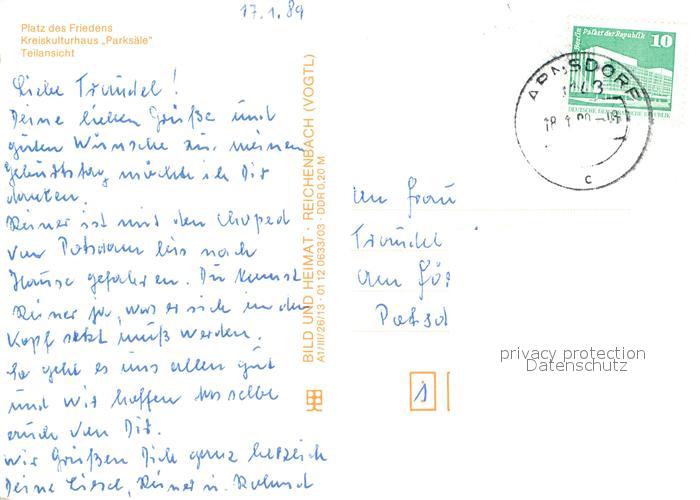 17.1.89
Platz des Friedens
Kreiskulturhaus „Parksäle"
Teilansicht
Liebe Traudel!
Deine lieben Grüße und
guten Wünsche zu meinem
Geburtstag möchte ich Dir
danken.
Reiner ist mit den Moped
von Potsdam bis nach
Hause gefahren. Du kennst
Reiner ja, was er sich in den
Kopf setzt muß werden.
So geht es uns allen gut
und wir hoffen das selbe
auch von Dir.
Wir Grüßen Dich ganz herzlich
Deine Liesel, Reiner u. Roland
BILD UND HEIMAT · REICHENBACH (VOGTL)
A1/III/26/13 · 01 12 0633/03 · DDR 0,20 M
Berlin Palast der Republik 10
DEUTSCHE DEMOKRATISCHE REPUBLIK
ARNSDORF
C
Frau
Traudel
Potsd
1
privacy protection
Datenschutz